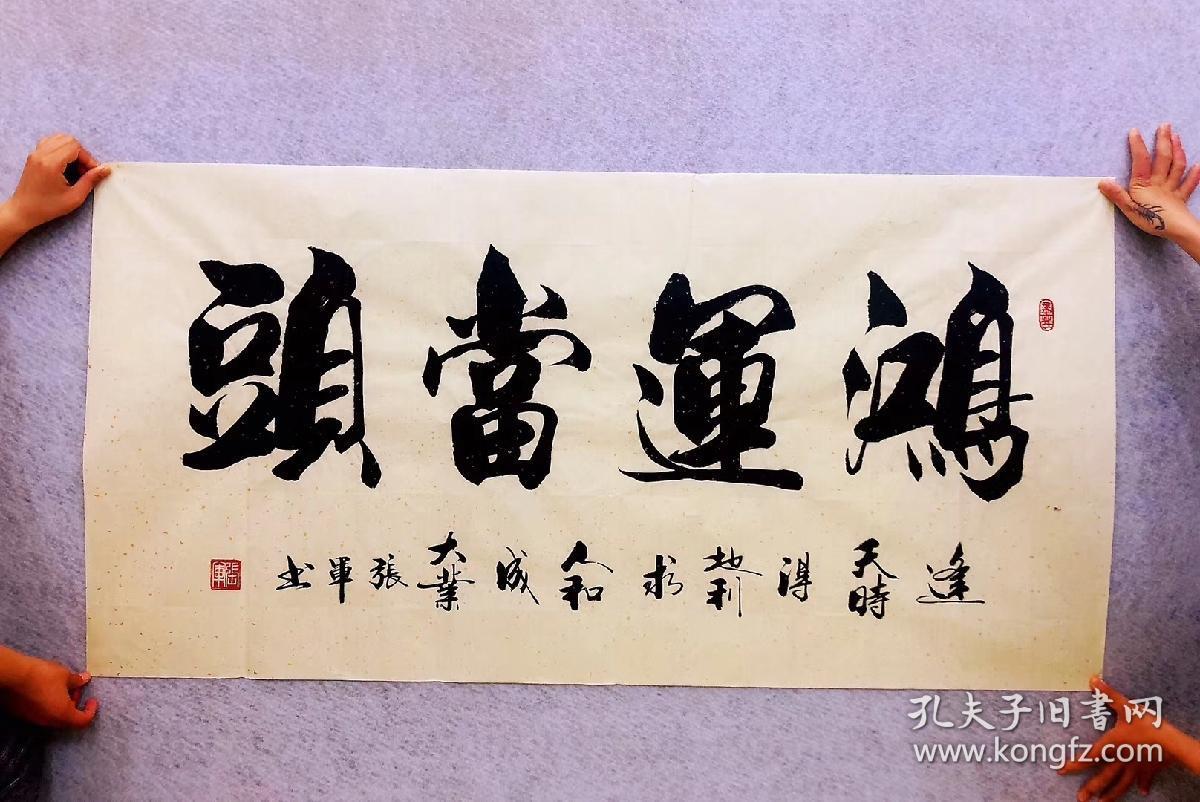 鴻運當頭
逢天時得地利求人和成大業張軍书
張軍
孔夫子旧書网
www.kongfz.com